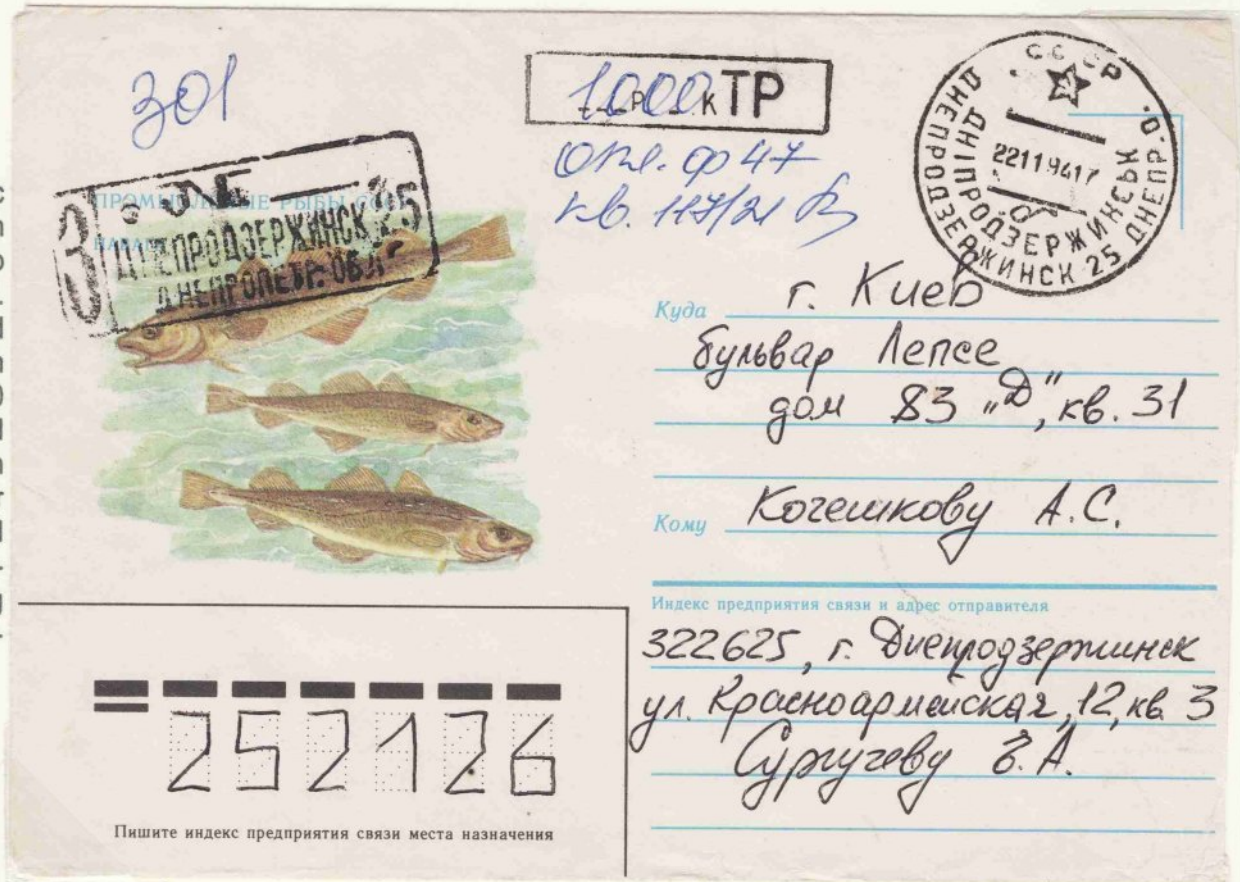 301
1000 р. к ТР
опл. ф 47
кв. 117/21
СССР
ДНЕПРОДЗЕРЖИНСК 25 ДНЕПР.О.
ДНІПРОДЗЕРЖИНСЬК
22119417
ПРОМЫСЛОВЫЕ РЫБЫ СССР
З
ДНЕПРОДЗЕРЖИНСК 25
ДНЕПРОПЕТР. ОБЛ
Куда г. Киев
бульвар Лепсе
дом 83 „Д", кв. 31
Кому Кочешкову А.С.
Индекс предприятия связи и адрес отправителя
322625, г. Днепродзержинск
ул. Красноармейская, 12, кв 3
Сургучеву В.А.
252126
Пишите индекс предприятия связи места назначения